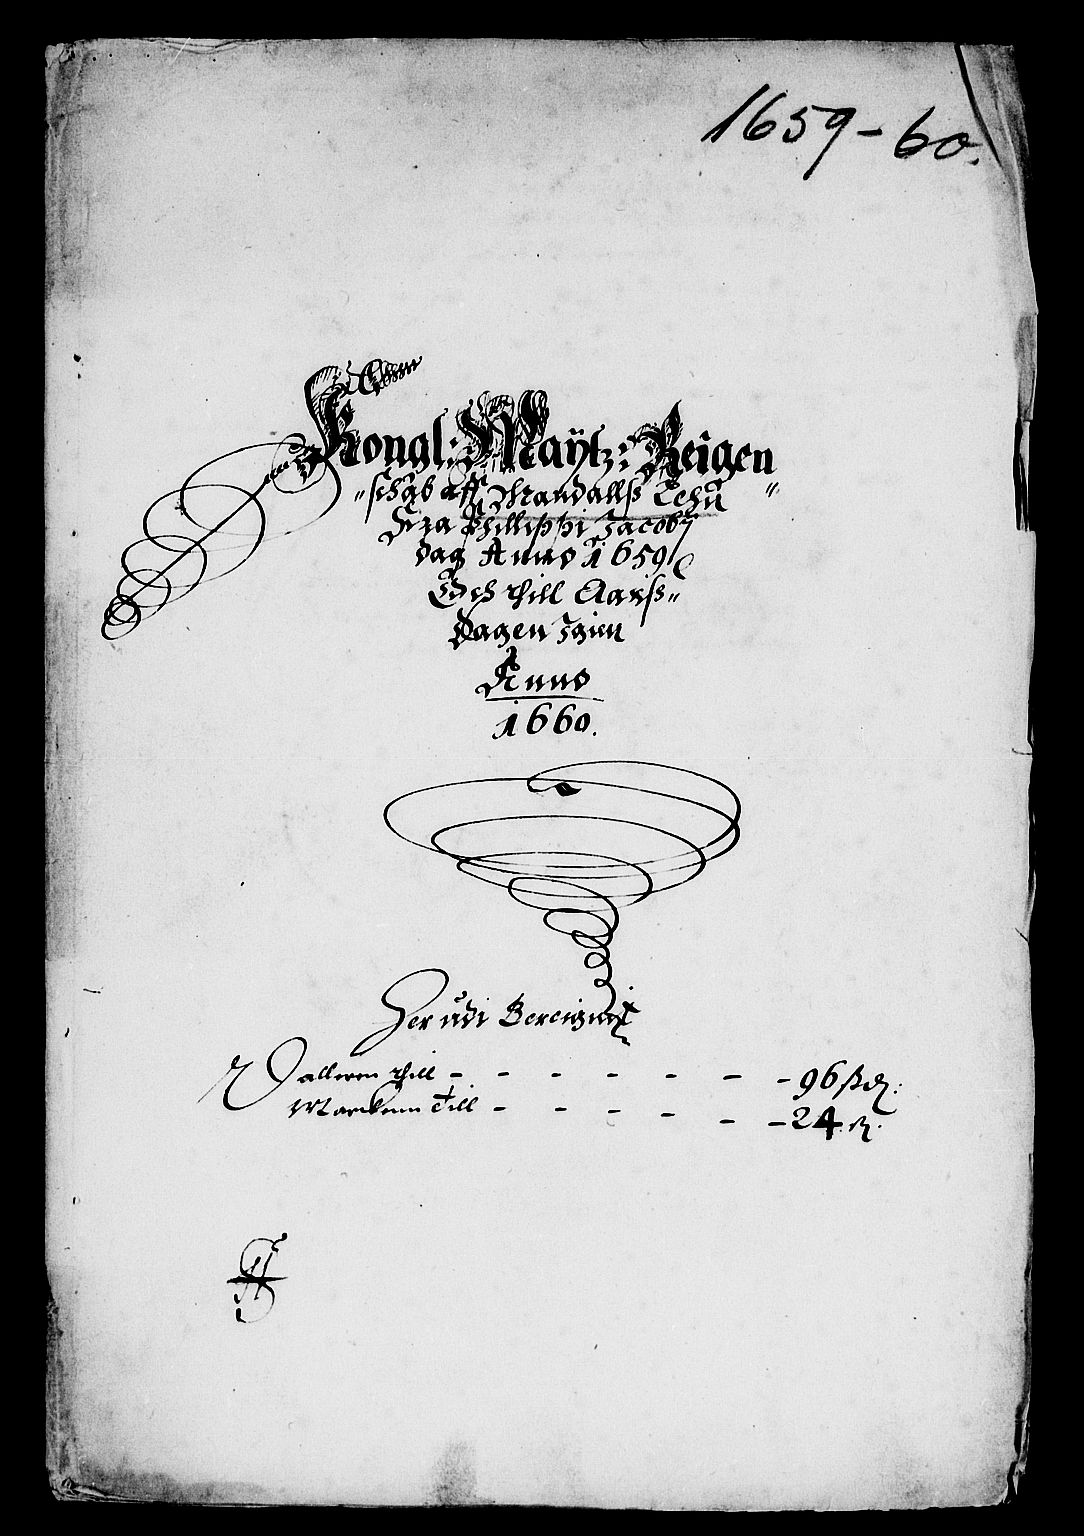 1659-60.
Kongl: Maÿtz: Reigen
"schab aff Mandallß Lehn
Fra Phillippi Jacobj
dag Anno 1659
Och thill Aarß"
dagen Igien
Anno
1660.
Her udi Bereignit
Dalleren thill - - - - - - - 96 ß
Marcken Till - - - - - - 24 ß